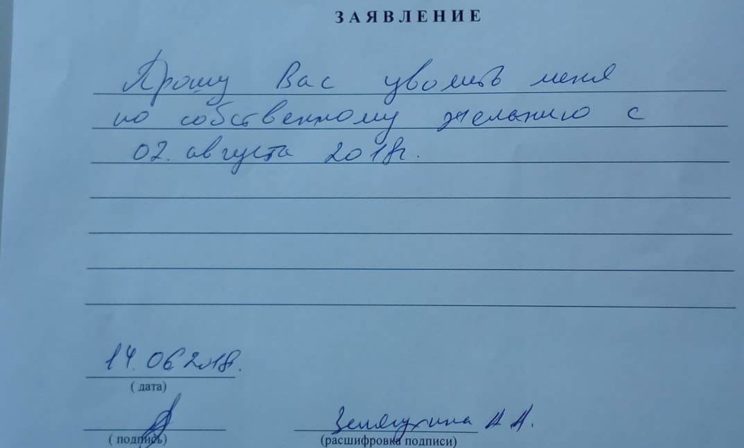 ЗАЯВЛЕНИЕ
Прошу Вас уволить меня
по собственному желанию с
02. августа 2018г.
14.06.2018г.
( дата)
( подпись)
А.А.
(расшифровка подписи)